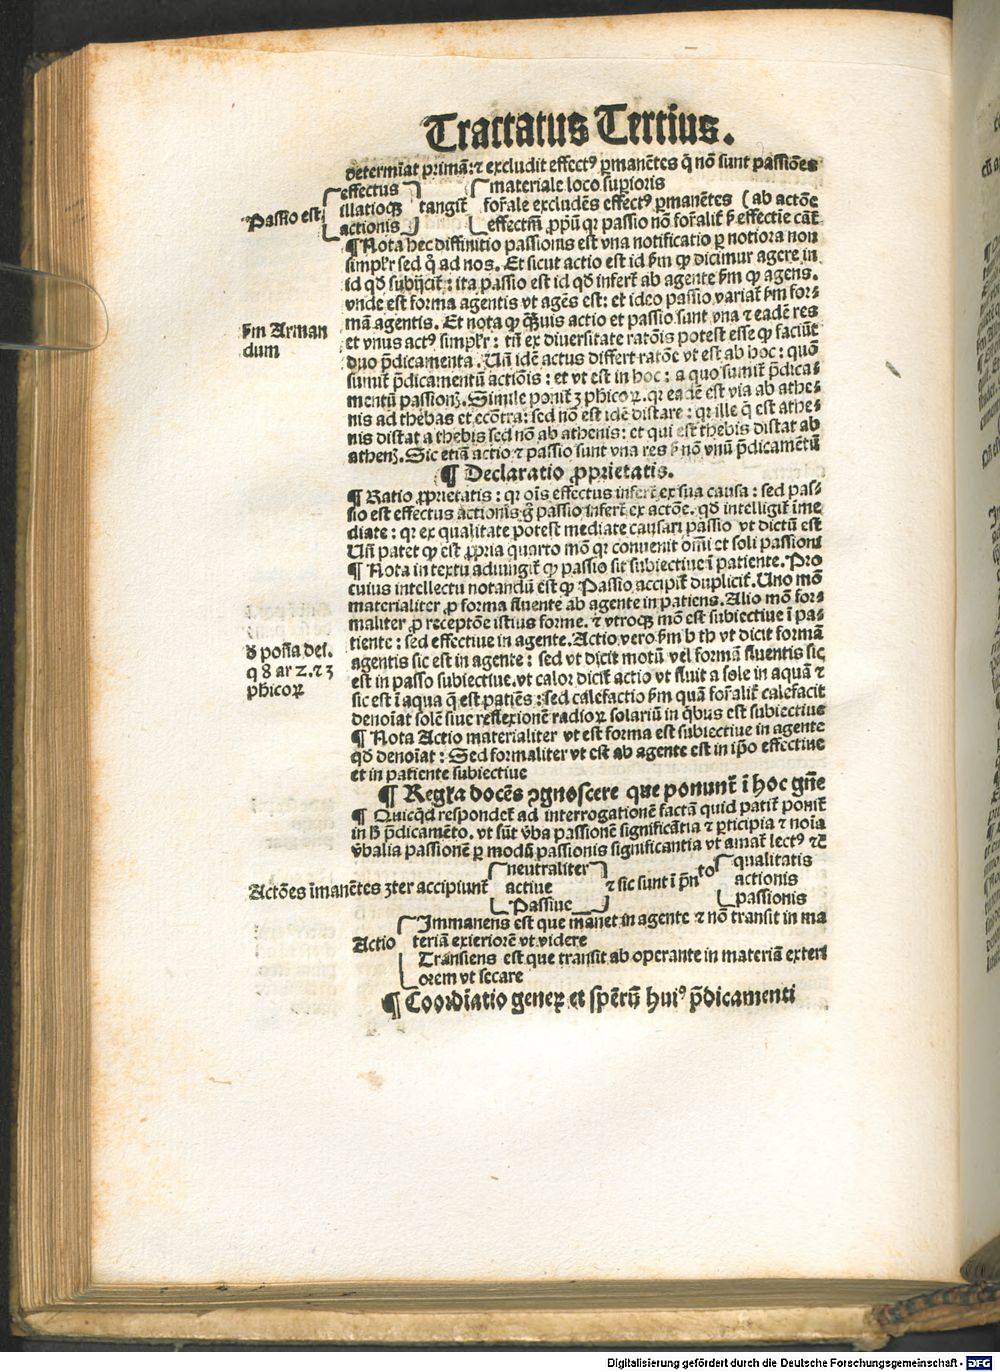 Tractatus Tertius.
determīat primā: ⁊ excludit effectꝰ ꝑmanētes q̄ nō sunt passiōes
Passio est
effectus
illatioqꝫ
actionis
tangit̄
materiale loco superioris
for̄ale excludēs effectꝰ ꝑmanētes (ab actōe
effectiūi ꝓpriū qꝛ passio nō for̄alit̄ ꝑ effectiue cāt̄
¶ Nota hec diffinitio passionis est vna notificatio ꝑ notiora non
simplr̄ sed q̊ ad nos. Et sicut actio est id ẜm qꝙ dicimur agere in
id qd̄ subijcit̄: ita passio est id qd̄ infert̄ ab agente ẜm qꝙ agens.
vnde est forma agentis vt agēs est: et ideo passio variat̄ ẜm for⸗
mā agentis. Et nota qꝙ q̄uis actio et passio sunt vna ⁊ eadē res
et vnus actꝰ simplr̄: tn̄ ex diuersitate ratōis potest esse qꝙ faciūt
duo p̄dicamenta. Un̄ idē actus differt ratōe vt est ab hoc: quō
sumit̄ p̄dicamentū actiōis: et vt est in hoc: a quo sumit̄ p̄dica⸗
mentū passionꝭ. Simile ponit̄ 3 phicoꝝ. qꝛ eadē est via ab athe⸗
nis ad thebas et ecōtra: sed nō est idē distare: qꝛ ille q̄ est athe⸗
nis distat a thebis sed nō ab athenis: et qui est thebis distat ab
athenꝭ. Sic etiā actio ⁊ passio sunt vna res ꝑ nō vnū p̄dicamētū
ẜm Arman
dum
¶ Declaratio ꝓprietatis.
¶ Ratio ꝓprietatis: qꝛ oīs effectus infert̄ ex sua causa: sed pas⸗
sio est effectus actionis g̊ passio infert̄ ex actōe. qd̄ intelligit̄ īme
diate: qꝛ ex qualitate potest mediate causari passio vt dictū est
Un̄ patet qꝙ est ꝓpria quarto mō qꝛ conuenit om̄i et soli passioni
¶ Nota in textu adiungit̄ qꝙ passio sit subiectiue ī patiente. Pro
cuius intellectu notandū est qꝙ Passio accipit̄ duplicit̄. Uno mō
materialiter ꝓ forma fluente ab agente in patiens. Alio mō for⸗
maliter ꝓ receptōe istius forme. ⁊ vtroqꝫ mō est subiectiue ī pa⸗
tiente: sed effectiue in agente. Actio vero ẜm b th vt dicit formā
agentis sic est in agente: sed vt dicit motū vel formā fluentis sic
est in passo subiectiue. vt calor dicit̄ actio vt fluit a sole in aquā ⁊
sic est ī aqua q̄ est patiēs: sed calefactio ẜm quā for̄alit̄ calefacit
denoīat solē siue reflexionē radioꝝ solariū in q̇bus est subiectiue
¶ Nota Actio materialiter vt est forma est subiectiue in agente
qd̄ denoīat: Sed formaliter vt est ab agente est in ip̄o effectiue
et in patiente subiectiue
q 8 ar 2. ⁊ 3
phicoꝝ
¶ Regl̄a docēs ꝯgnoscere que ponunt̄ ī hoc gn̄e
¶ Quicq̇d respondet̄ ad interrogationē factā quid patit̄ ponit̄
in ħ p̄dicamēto. vt sūt v̄ba passionē significātia ⁊ ꝑticipia ⁊ noīa
v̄balia passionē ꝑ modū passionis significantia vt amat̄ lectꝰ ⁊c̄
Actōes īmanētes 3ter accipiunt̄
neutraliter
actiue
Passiue
⁊ sic sunt ī p̄n to
qualitatis
actionis
passionis
Actio
Immanens est que manet in agente ⁊ nō transit in ma
teriā exteriorē vt videre
Transiens est que transit ab operante in materiā exteri
orem vt secare
¶ Coordīatio generꝝ et sp̄erū huiꝰ p̄dicamenti
Digitalisierung gefördert durch die Deutsche Forschungsgemeinschaft - DFG